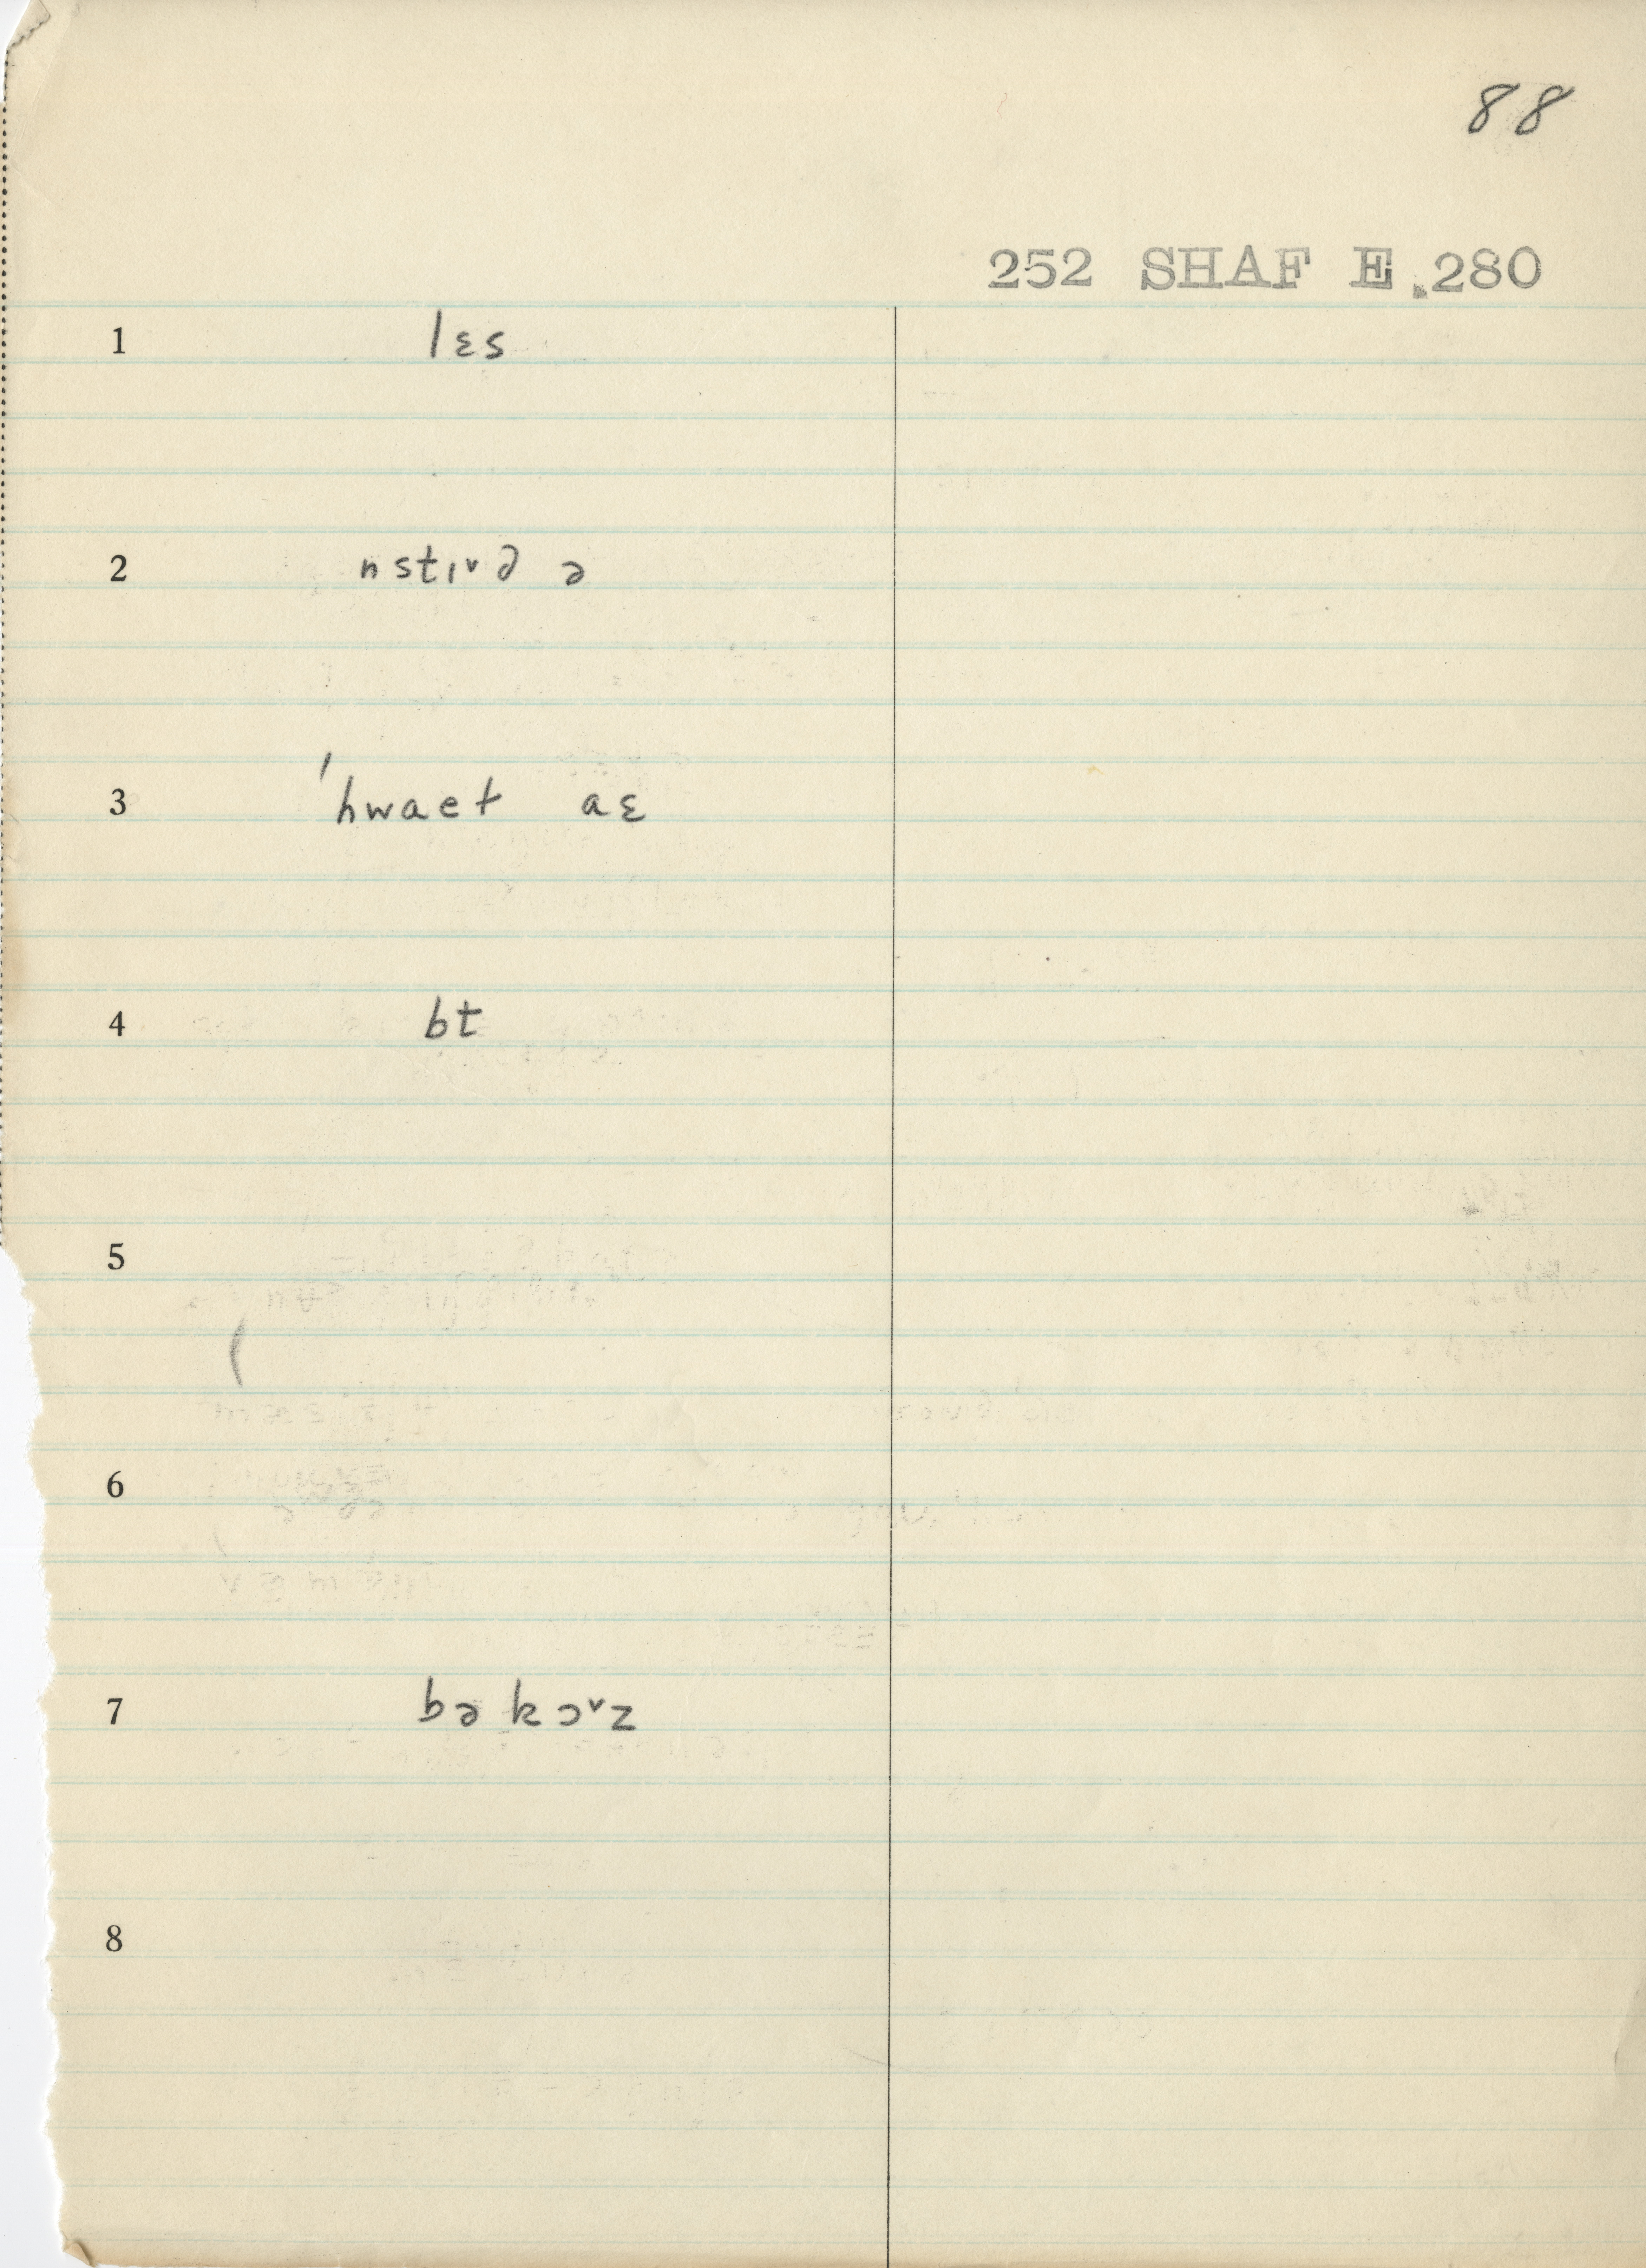 88
252 SHAF E.280
1 lɛs
2 nstɪᵛd ə
3 ˈhwaet aɛ
4 bt
5
6
7 bə kɔᵛz
8